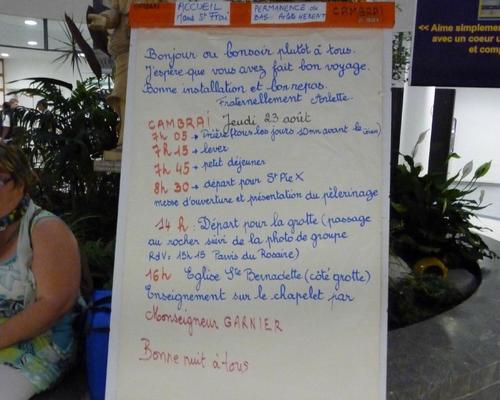 ACCUEIL
PERMANENCE du
CAMBRAI
<< Aime simplemen
avec un coeur u
et comp
Bonjour ou bonsoir plutôt à tous.
J'espère que vous avez fait bon voyage.
Bonne installation et bon repos.
Fraternellement Arlette.
CAMBRAI Jeudi 23 août
7h 05 → Prière (tous les jours 10mn avant le lever)
7h 15 → lever
7h 45 → petit déjeuner
8h 30 → départ pour St Pie X
messe d'ouverture et présentation du pèlerinage
14 h : Départ pour la grotte (passage
au rocher suivi de la photo de groupe
RdV : 15h 15 Parvis du Rosaire)
16h Eglise Ste Bernadette (côté grotte)
Enseignement sur le chapelet par
Monseigneur GARNIER
Bonne nuit à tous